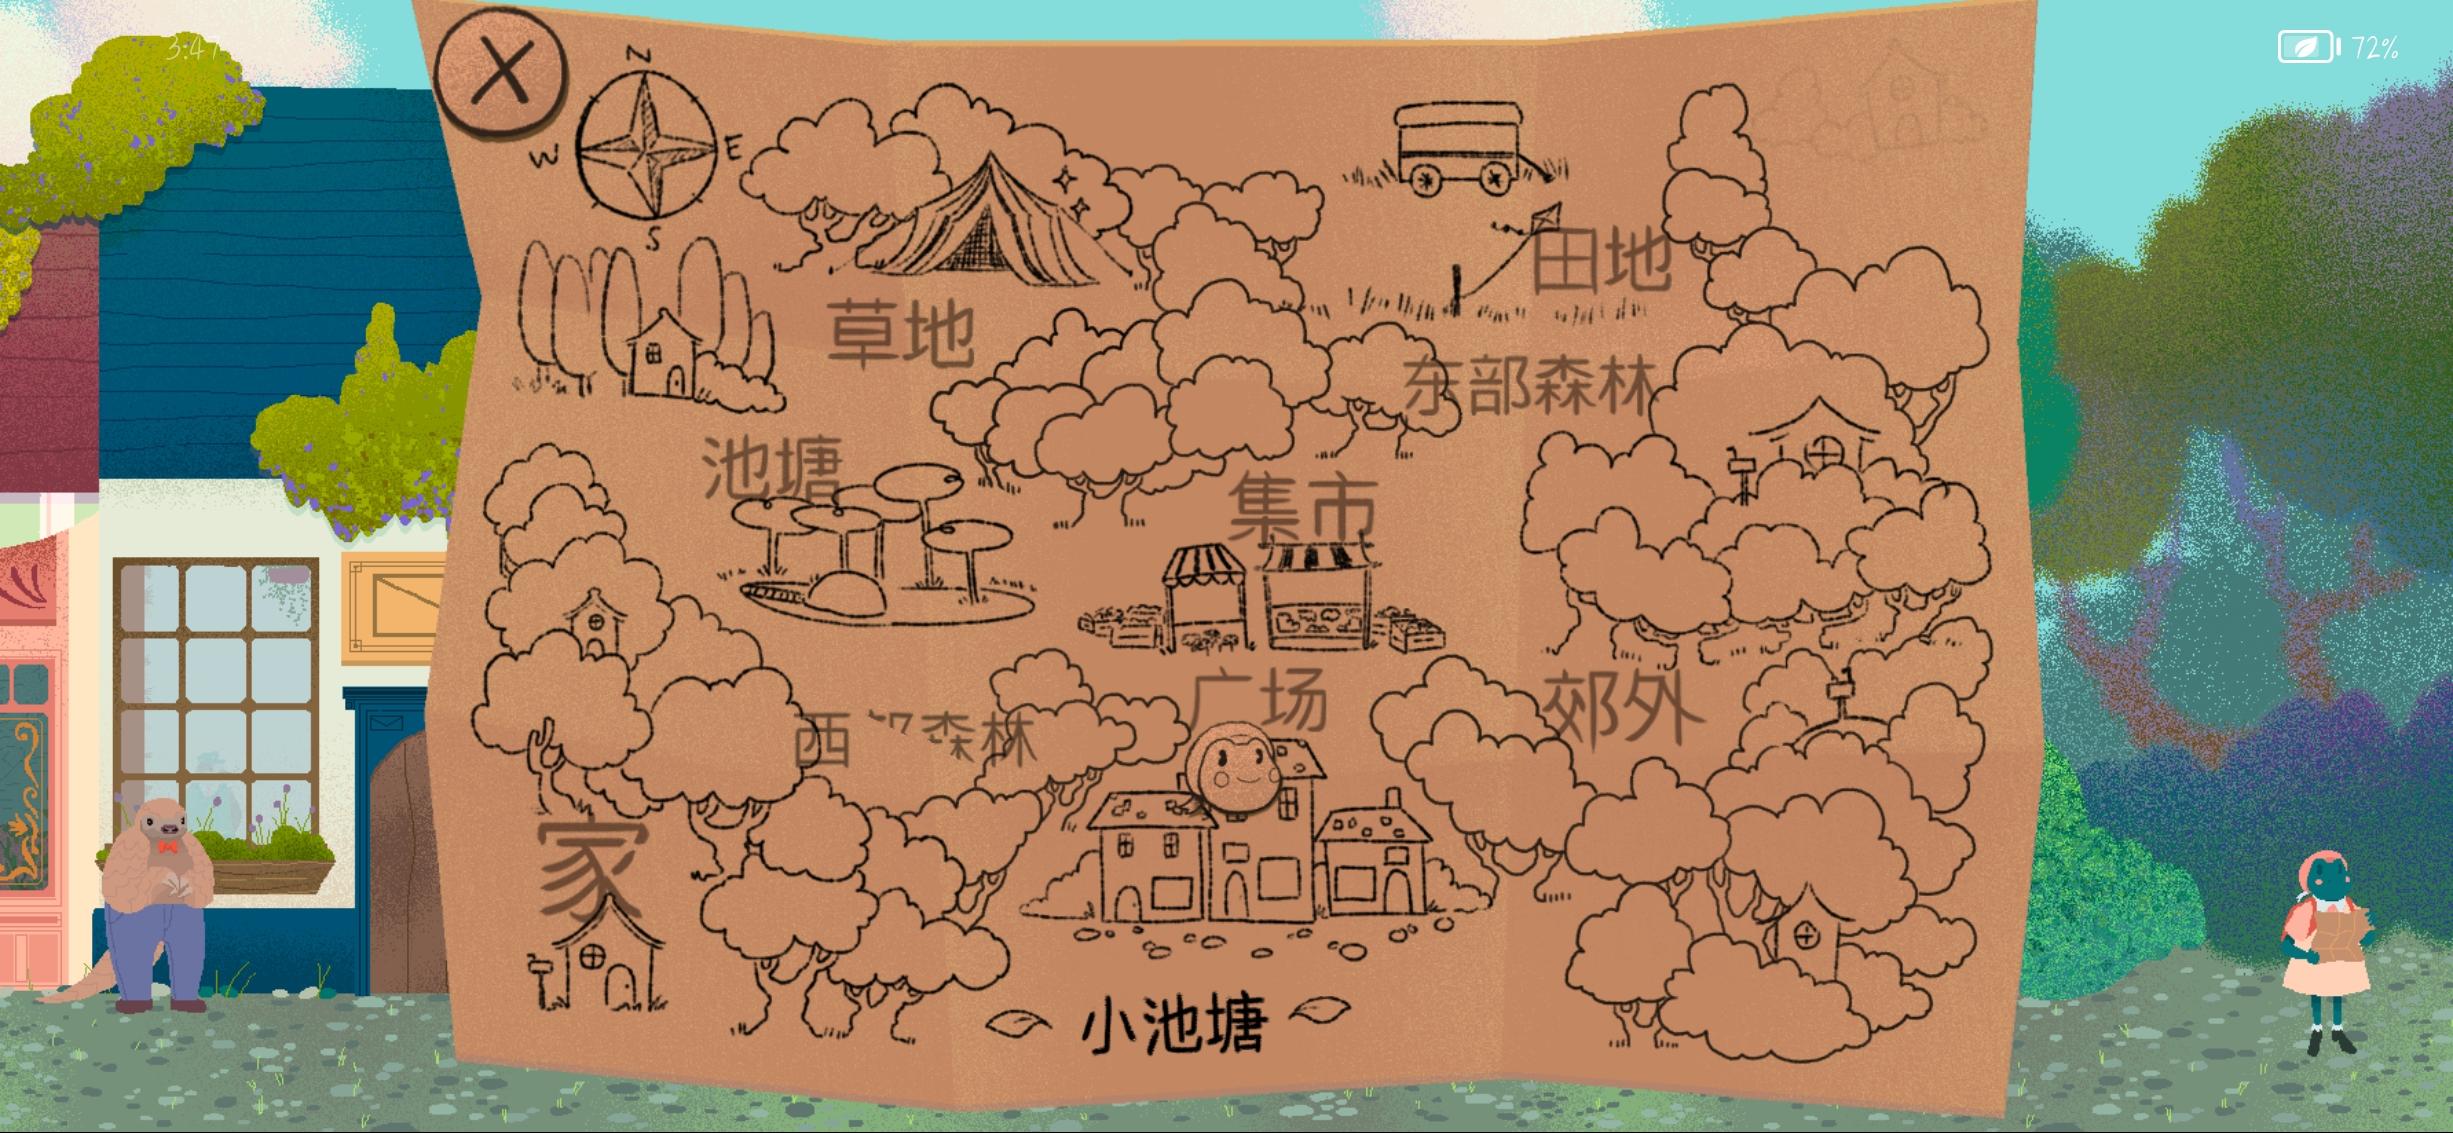 3:47
72%
N
W
E
S
田地
草地
东部森林
池塘
集市
广场
郊外
西 森林
家
小池塘